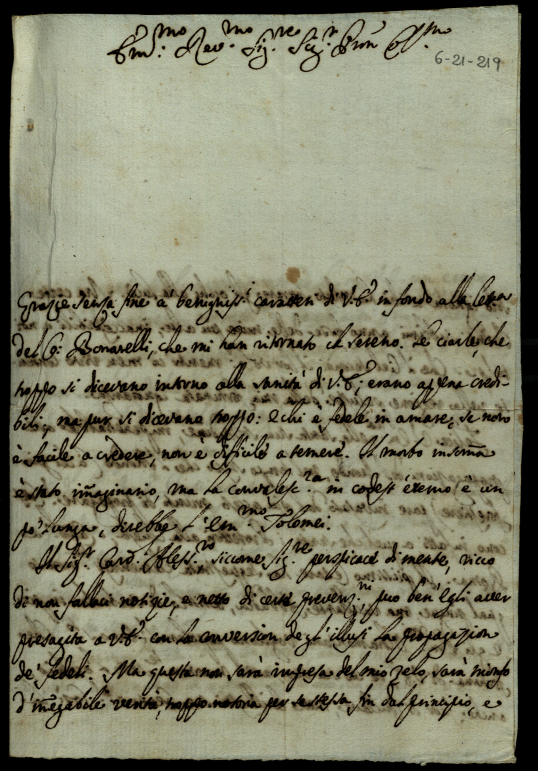 Em.mo Rev.mo Sig.re Sig.r Pron Col.mo
6-21-219
Grazie senza fine a' benigniss.i caratteri di V.E. in fondo alla lettera
del Co: Bonarelli, che mi han ritornato il sereno. Le ciarle, che
troppo si dicevano intorno alla sanità di V.E., erano appena credi-
bili, ma pur si dicevano troppo: e chi è fedele in amare, se non
è facile a credere, non è difficile a temere. Il morbo insomma
è stato imaginario, ma la convalesc.za in codest' eremo è un
po' lunga, direbbe l'Em.mo Tolomei.
Il Sig.r Card. Aless.ro, siccome Sig.re perspicace di mente, ricco
di non fallaci notizie, e netto di certe prevenz.ni, può ben'egli aver
presagita a V.E. con la conversion degl'illusi la propagazion
de' fedeli. Ma questa non sarà impresa del mio zelo, sarà trionfo
d'innegabile verità, troppo notoria per se stessa fin dal principio, e